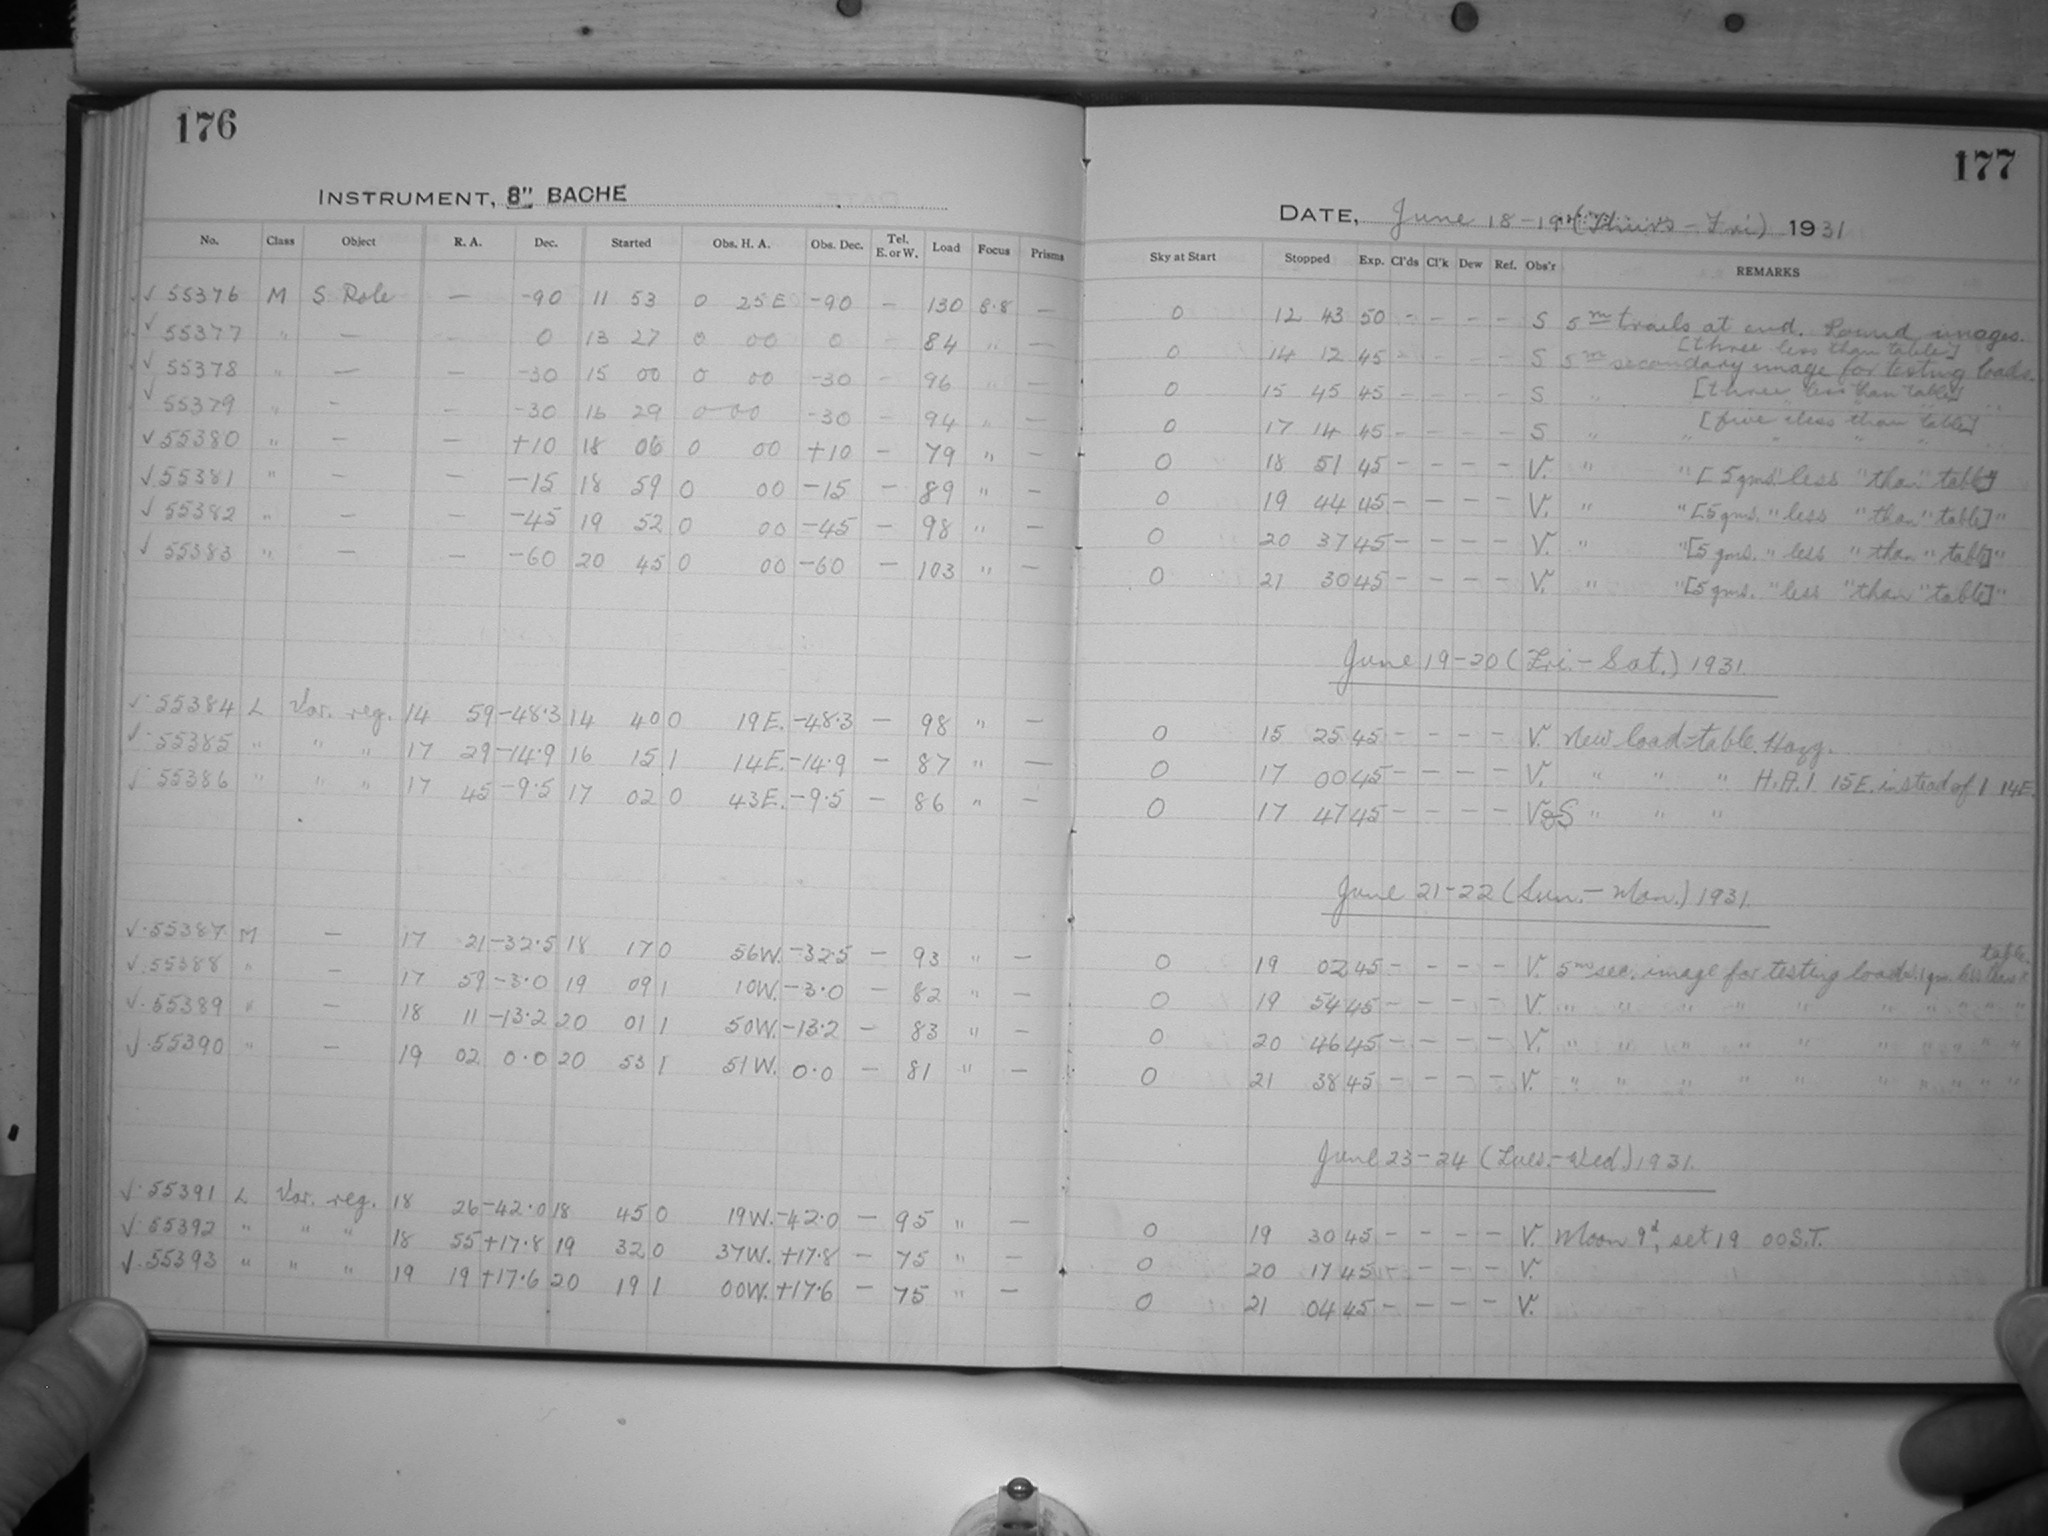 176
INSTRUMENT, 8" BACHE
No. Class Object R. A. Dec. Started Obs. H. A. Obs. Dec. Tel. E. or W. Load Focus Prisms
√ 55376 M S Pole — -90 11 53 0 25E -90 — 130 8.8 —
√ 55377 " — 0 13 27 0 00 0 — 84 " —
√ 55378 " — — -30 15 00 0 00 -30 — 96 " —
√ 55379 " — — -30 16 29 0 00 -30 — 94 " —
√ 55380 " — — +10 18 06 0 00 +10 — 79 " —
√ 55381 " — — -15 18 59 0 00 -15 — 89 " —
√ 55382 " — — -45 19 52 0 00 -45 — 98 " —
√ 55383 " — — -60 20 45 0 00 -60 — 103 " —
√ 55384 L Var. reg. 14 59 -48.3 14 40 0 19E. -48.3 — 98 " —
√ 55385 " " " 17 29 -14.9 16 15 1 14E. -14.9 — 87 " —
√ 55386 " " " 17 45 -9.5 17 02 0 43E. -9.5 — 86 " —
√ 55387 M — 17 21 -32.5 18 17 0 56W. -32.5 — 93 " —
√ 55388 " — 17 59 -3.0 19 09 1 10W. -3.0 — 82 " —
√ 55389 " — 18 11 -13.2 20 01 1 50W. -13.2 — 83 " —
√ 55390 " — 19 02 0.0 20 53 1 51W. 0.0 — 81 " —
√ 55391 L Var. reg. 18 26 -42.0 18 45 0 19W. -42.0 — 95 " —
√ 55392 " " " 18 55 +17.8 19 32 0 37W. +17.8 — 75 " —
√ 55393 " " " 19 19 +17.6 20 19 1 00W. +17.6 — 75 " —
177
DATE, June 18-19 (Thurs - Fri) 1931
Sky at Start Stopped Exp. Cl'ds Cl'k Dew Ref. Obs'r REMARKS
0 12 43 50 - - - - S 5m trails at end. Round images.
[three less than table]
0 14 12 45 - - - - S 5m secondary image for testing loads.
0 15 45 45 - - - - S " [three less than table]
0 17 14 45 - - - - S " " [five less than table]
0 18 51 45 - - - - V. " " [5gms. less " than " table]
0 19 44 45 - - - - V. " " [5gms. " less " than " table] "
0 20 37 45 - - - - V. " " [5gms. " less " than " table] "
0 21 30 45 - - - - V. " " [5gms. " less " than " table] "
June 19-20 (Fri. - Sat.) 1931.
0 15 25 45 - - - - V. New load-table. Hazy.
0 17 00 45 - - - - V. " " " H.A. 1 15E. instead of 1 14E.
0 17 47 45 - - - - V&S " " "
June 21-22 (Sun. - Mon.) 1931.
0 19 02 45 - - - - V. 5m sec. image for testing loads. 1gm. less than table.
0 19 54 45 - - - - V. " " " " " " " " " "
0 20 46 45 - - - - V. " " " " " " " " " "
0 21 38 45 - - - - V. " " " " " " " " " "
June 23-24 (Tues. - Wed.) 1931.
0 19 30 45 - - - - V. Moon 9d, set 19 00 S.T.
0 20 17 45 - - - - V.
0 21 04 45 - - - - V.